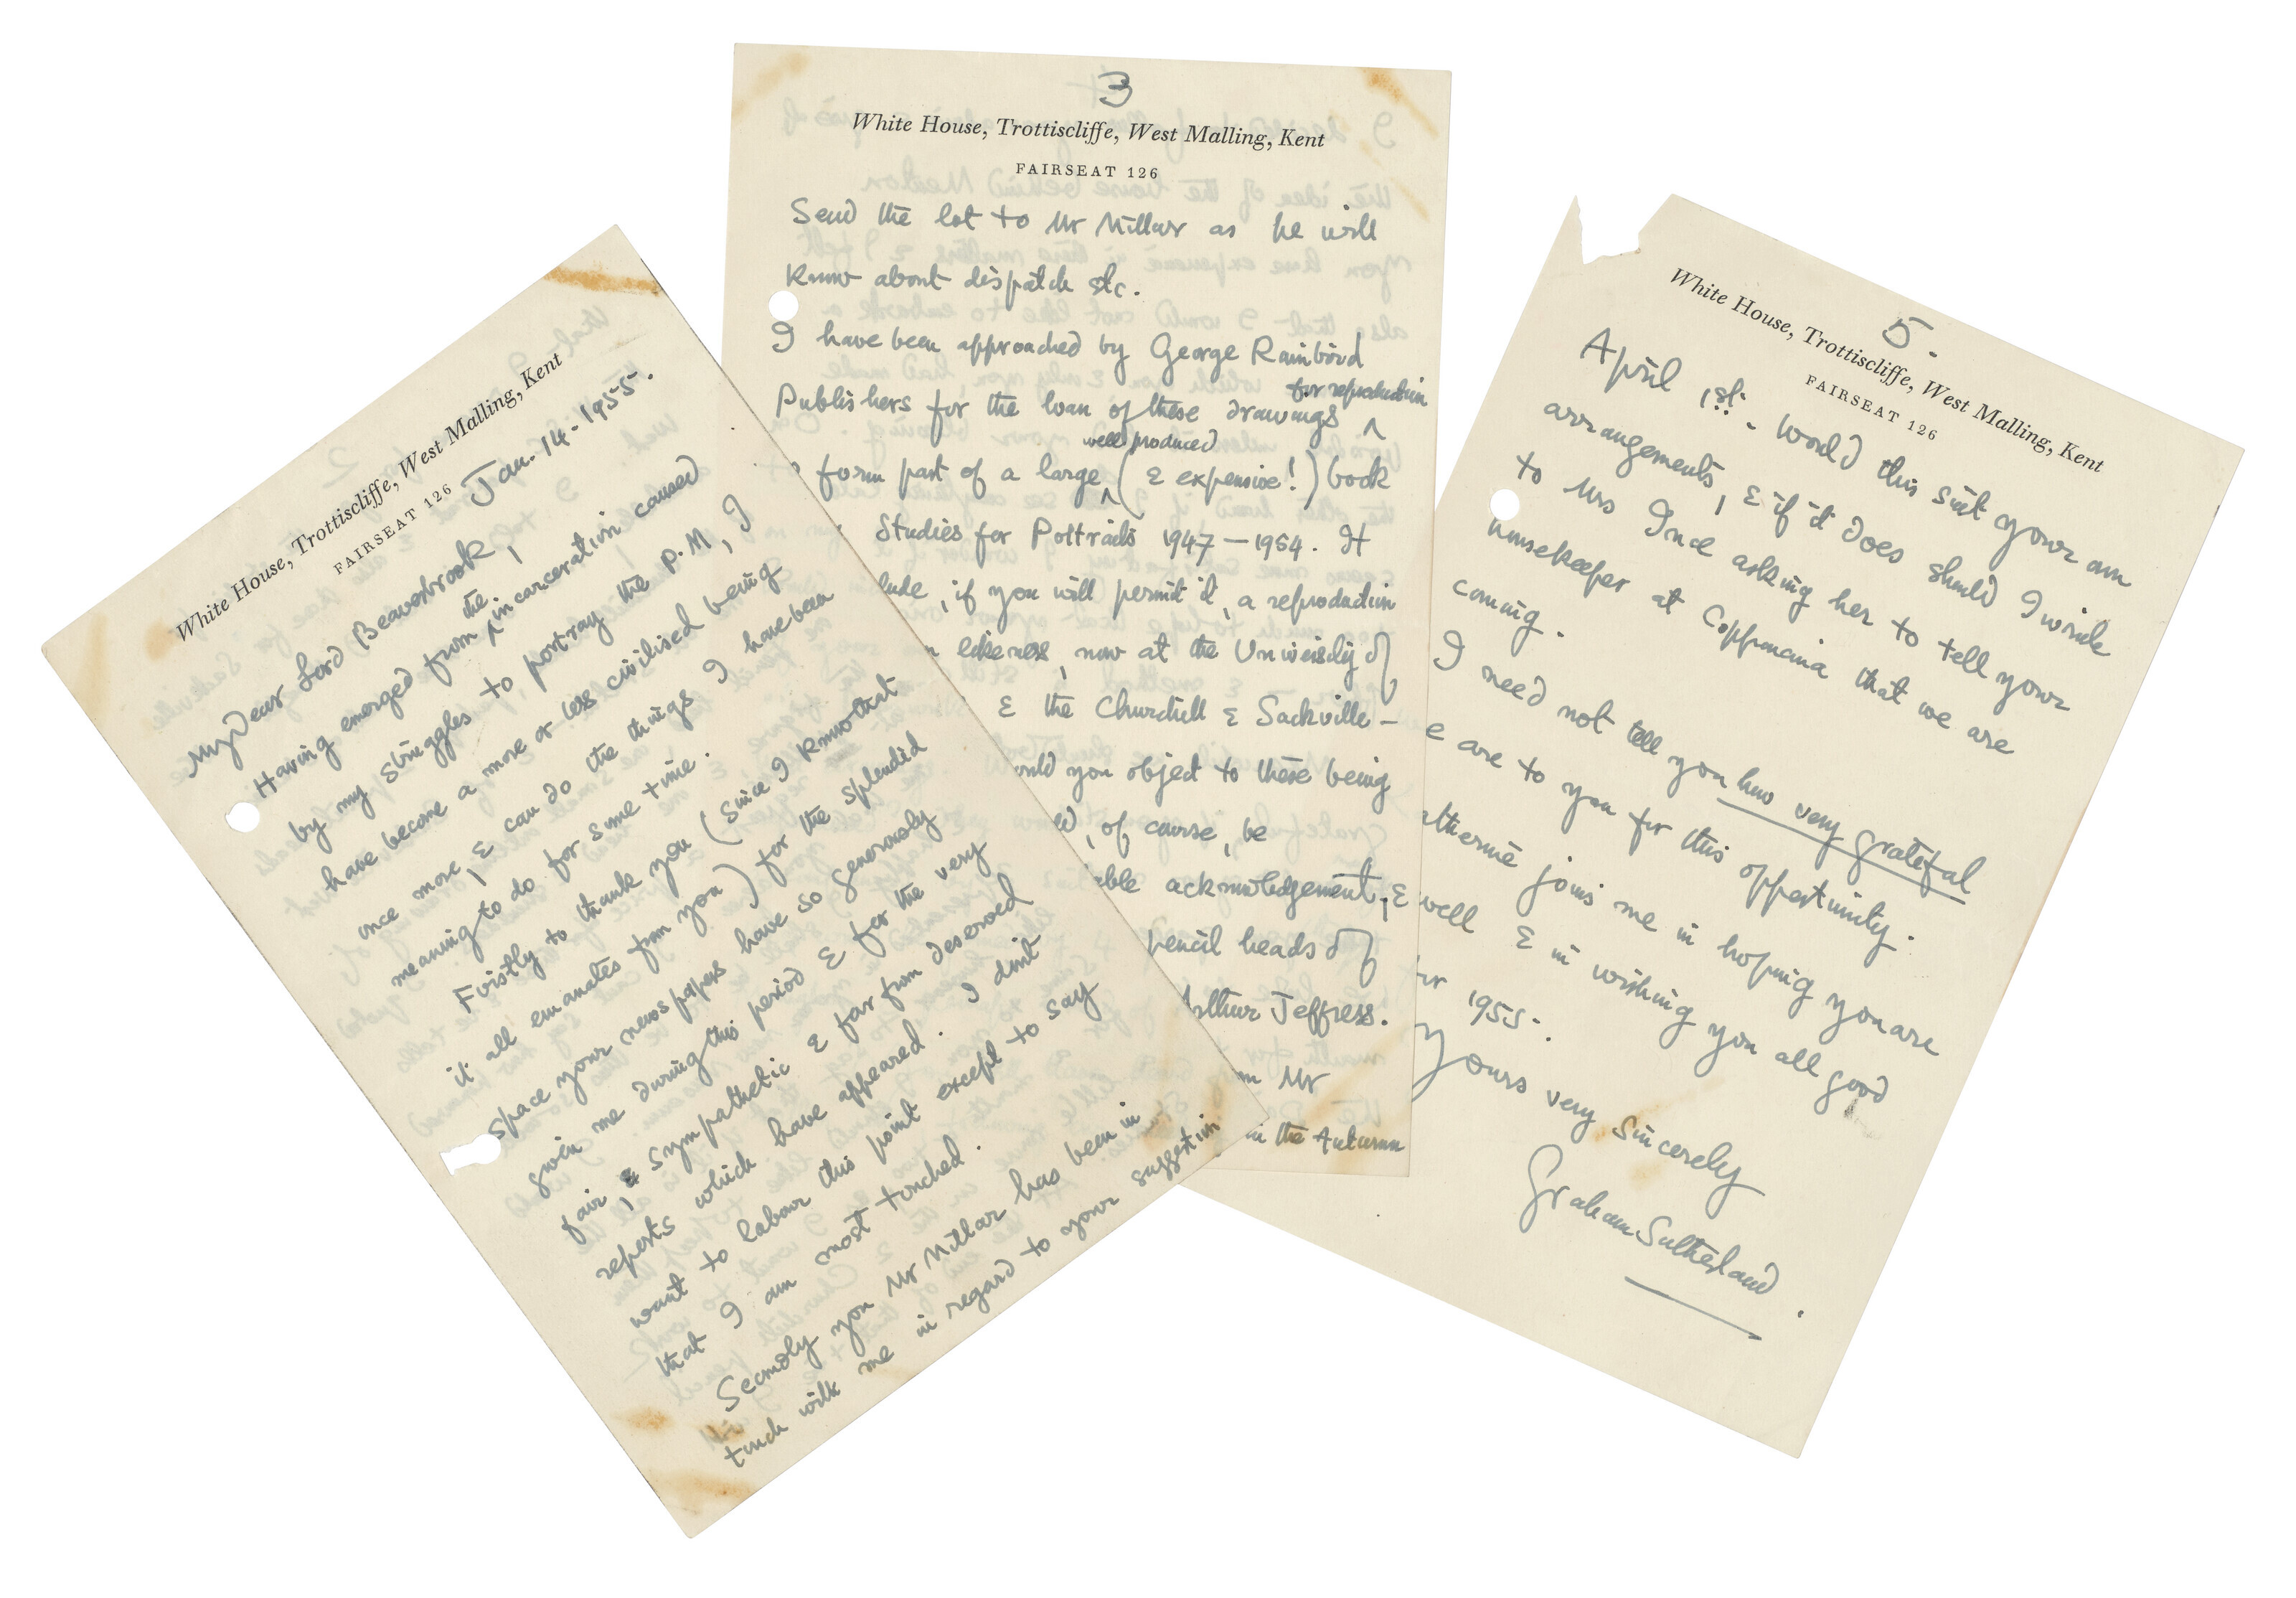 White House, Trottiscliffe, West Malling, Kent
FAIRSEAT 126
Jan. 14 - 1955.
My Dear Lord Beaverbrook,
Having emerged from the incarceration caused
by my struggles to portray the P.M, I
have become a more or less civilised being
once more, & can do the things I have been
meaning to do for some time.
Firstly to thank you (since I know that
it all emanates from you) for the splendid
space your newspapers have so generously
given me during this period & for the very
fair, & sympathetic & far from deserved
reports which have appeared. I dont
want to labour this point except to say
that I am most touched.
Secondly you Mr Millar has been in
touch with me in regard to your suggestion
3
White House, Trottiscliffe, West Malling, Kent
FAIRSEAT 126
Send the lot to Mr Millar as he will
know about dispatch etc.
I have been approached by George Rainbird
for reproduction
Publishers for the loan of these drawings ^
well produced
form part of a large ^ (& expensive!) book
Studies for Portraits 1947 – 1954. It
lude, if you will permit it, a reproduction
likeness, now at the University of
& the Churchill & Sackville –
uld you object to these being
, of course, be
able acknowledgement, &
pencil heads of
Arthur Jeffress.
Mr
in the Autumn
5.
White House, Trottiscliffe, West Malling, Kent
FAIRSEAT 126
April 1st. Would this suit your own
arrangements, & if it does should I write
to Mrs Ince asking her to tell your
housekeeper at Cappuncina that we are
coming.
I need not tell you how very grateful
e are to you for this opportunity.
atherine joins me in hoping you are
well & in wishing you all good
for 1955.
Yours very sincerely
Graham Sutherland.